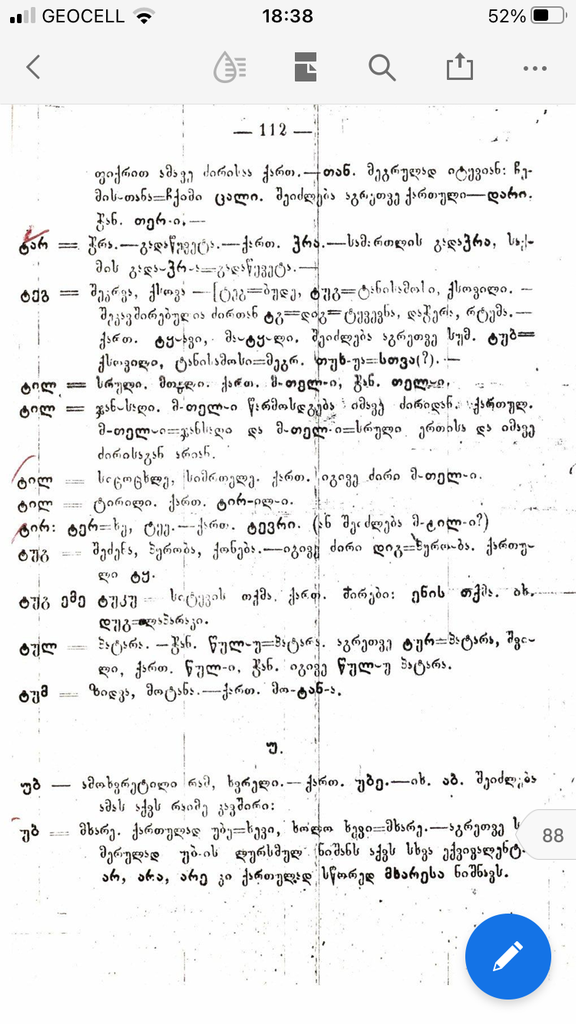 GEOCELL 18:38 52%
— 112 —
ფიქრით ამავე ძირისაა ქართ.—თან. მეგრულად იტევიან: ჩე-
მის-თანა=ჩქიმი ცალი. შეიძლება აგრეთვე ქართული—დარი.
ჭან. თერ-ი.—
ტარ = ჭრა.—გადაწყვეტა.—ქართ. ჭრა.—სამართლის გადაჭრა, საქ-
მის გადა-ჭრ-ა=გადაწყვეტა.—
ტეგ = შეკრვა, ქსოვა —[ტეგ=ბუდე, ტუგ=ტანისამოსი, ქსოვილი. —
შეკავშირებულია ძირთან ტგ=დიგ=ტევევნა, დაჭერა, რტემა.—
ქართ. ტყავი, მა-ტყ-ლი. შეიძლება აგრეთვე სუმ. ტუბ=
ქსოვილი, ტანისამოსი=მეგრ. თუხ-უა=სთვა(?). —
ტილ = სრული. მთელი. ქართ. მ-თელ-ი, ჭან. თელი.
ტილ = ჯან-საღი. მ-თელ-ი წარმოსდგება იმავე ძირიდან. ქართულ.
მ-თელ-ი=ჯანსაღი და მ-თელ-ი=სრული ერთისა და იმავე
ძირისაგან არიან.
ტილ = სიცოცხლე, სიმრთელე. ქართ. იგივე ძირი მ-თელ-ი.
ტილ = ტირილი. ქართ. ტირ-ილ-ი.
ტირ: ტერ=ხე, ტყე.—ქართ. ტევრი. (ან შეიძლება მ-ტილ-ი?)
ტუგ = შეძენა, ჭერობა, ქონება.—იგივე ძირი დიგ=ჭერობა. ქართუ-
ლი ტყ.
ტუგ ემე ტუკუ — სიტყვის თქმა. ქართ. პირები: ენის თქმა. იხ.
დუგ=ლაპარაკი.
ტულ = პატარა. —ჭან. წულ-უ=პატარა. აგრეთვე ტურ=პატარა, შვი-
ლი, ქართ. წულ-ი, ჭან. იგივე წულ-უ პატარა.
ტუმ = ზიდვა, მოტანა.—ქართ. მო-ტან-ა.
უ.
უბ — ამოხვრეტილი რამ, ხვრელი.—ქართ. უბე.—იხ. აბ. შეიძლება
ამას აქვს რაიმე კავშირი:
უბ = მხარე. ქართულად უბე=ხევი, ხოლო ხევი=მხარე.—აგრეთვე
მერულად უბ-ის ლურსმულ ნიშანს აქვს სხვა ექვივალენტ
არ, არა, არე კი ქართულად სწორედ მხარესა ნიშნავს.
88